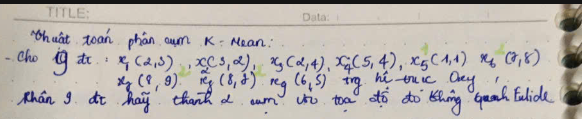 TITLE: Date:
Thuật toán phân cụm K-Mean:
- Cho 9 đt : x₁ (2,3), x(3,2), x₃ (2,4), x₄(5,4), x₅(1,1) x₆ (7,8)
(8, 9) (8, 7) x₉ (6,5) trg hệ trục Oxy,
Phân 9 đt hãy thành 2 cụm với toạ độ đo Euclide